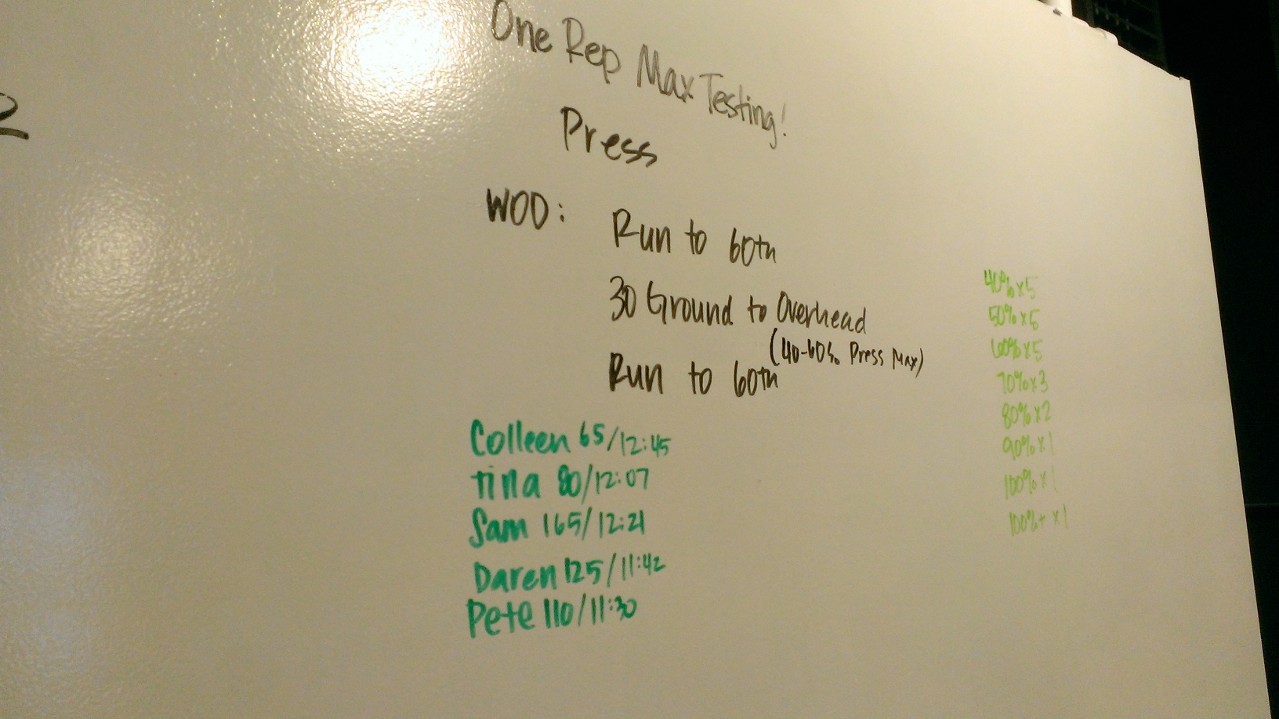 2
One Rep Max Testing!
Press
WOD: Run to 60th
30 Ground to Overhead
(40-60% Press Max)
Run to 60th
Colleen 65/12:45
Tina 80/12:07
Sam 165/12:21
Daren 125/11:42
Pete 110/11:30
40%x5
50%x5
60%x5
70%x3
80%x2
90%x1
100%x1
100%+ x1